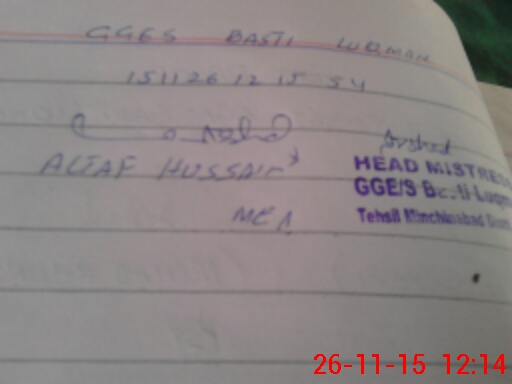 GGES BASTI LUQMAN
15 11 26 12 15 54
ALTAF HUSSAIN
MEA
Arshad
HEAD MISTRESS
GGE/S Basti Luqm
Tehsil Minchinabad Distt
26-11-15 12:14